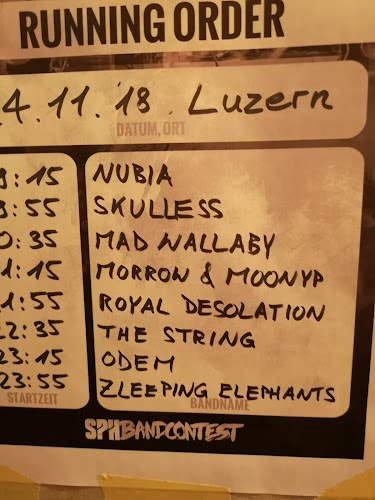 RUNNING ORDER
4.11.'18. Luzern
DATUM, ORT
:15 NUBIA
:55 SKULLESS
0:35 MAD WALLABY
1:15 MORROW & MOONYP
1:55 ROYAL DESOLATION
22:35 THE STRING
23:15 ODEM
23:55 ZLEEPING ELEPHANTS
STARTZEIT BANDNAME
SPH BANDCONTEST